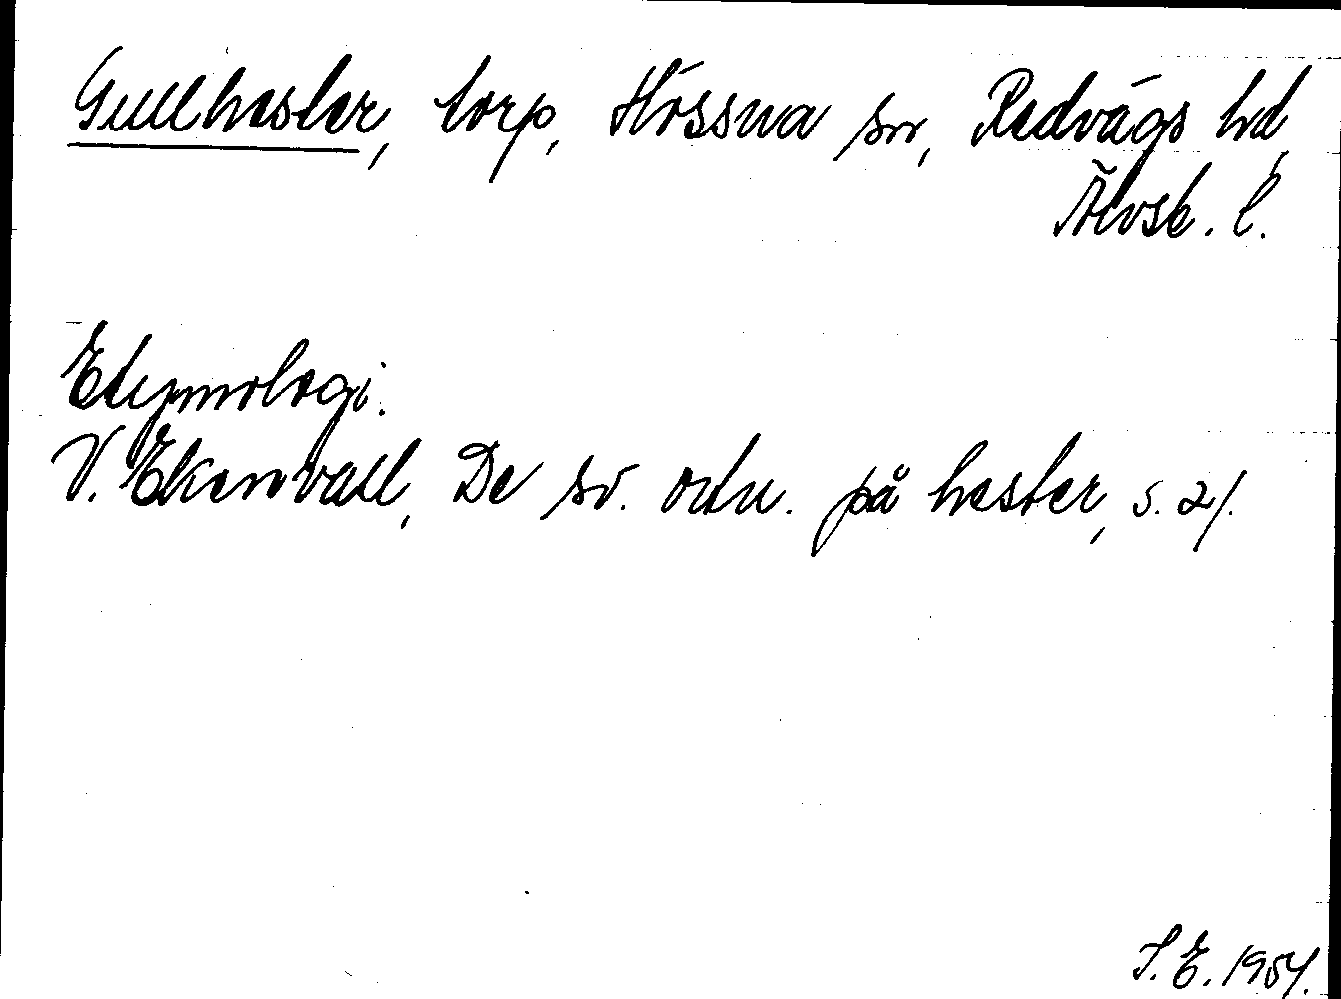 Gullhester, torp, Hössna sn, Redvägs hd,
Älvsb. l.
Etymologi.
V. Ekenvall, De sv. ortn. på hester, s. 21.
S.E. 1954.